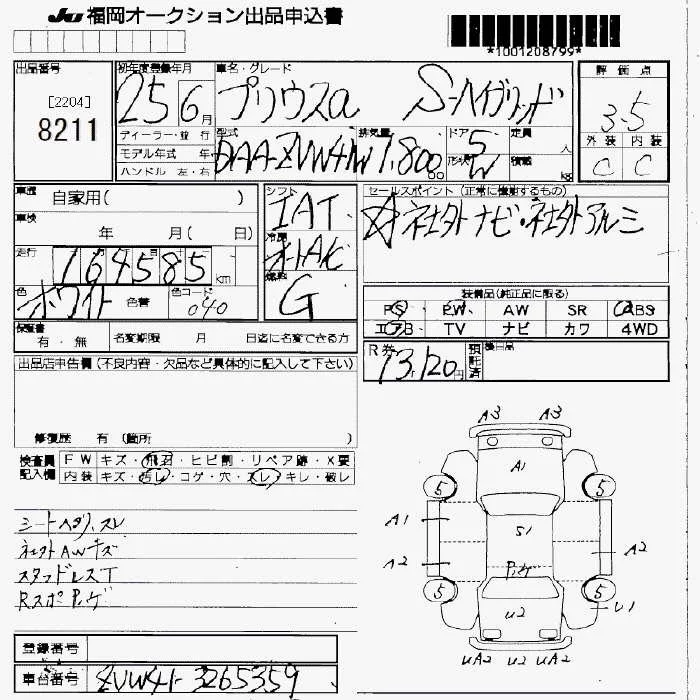 JU 福岡オークション出品申込書
*1001208799*
出品番号
[2204]
8211
初年度登録年月
25 6月
車名・グレード
プリウスα S-ハイブリッド
評価点
3.5
外装 内装
C C
ディーラー・並行
モデル年式 年
ハンドル 左・右
型式
DAA-ZVW41W
排気量
1,800
cc
ドア
5
形状
W
定員
人
積載
kg
車歴
自家用( )
車検
年 月( 日)
走行
164585km
色
ホワイト 色替
色コード
040
シフト
IAT
冷房
AAC
燃料
G
セールスポイント(正常に機能するもの)
☆社外ナビ・社外アルミ
装備品(純正品に限る)
PS PW AW SR ABS
エアB TV ナビ カワ 4WD
保証書
有・無
名変期限 月 日迄に名変できる方
R券
13,120円
預託済
後日品
出品店申告欄(不良内容・欠品など具体的に記入して下さい)
修復歴 有(箇所 )
検査員
記入欄
FW キズ・飛石・ヒビ割・リペア跡・X要
内装 キズ・汚レ・コゲ・穴・スレ・キレ・破レ
シートヘタリ、スレ
社外AWキズ
スタッドレスT
RスポPンゲ
A3 A3
A1
5 5
A1
S1
A2 A2
Pンゲ
5 5
U2
U1
UA2 U2 UA2
登録番号
車台番号
ZVW41-3265359